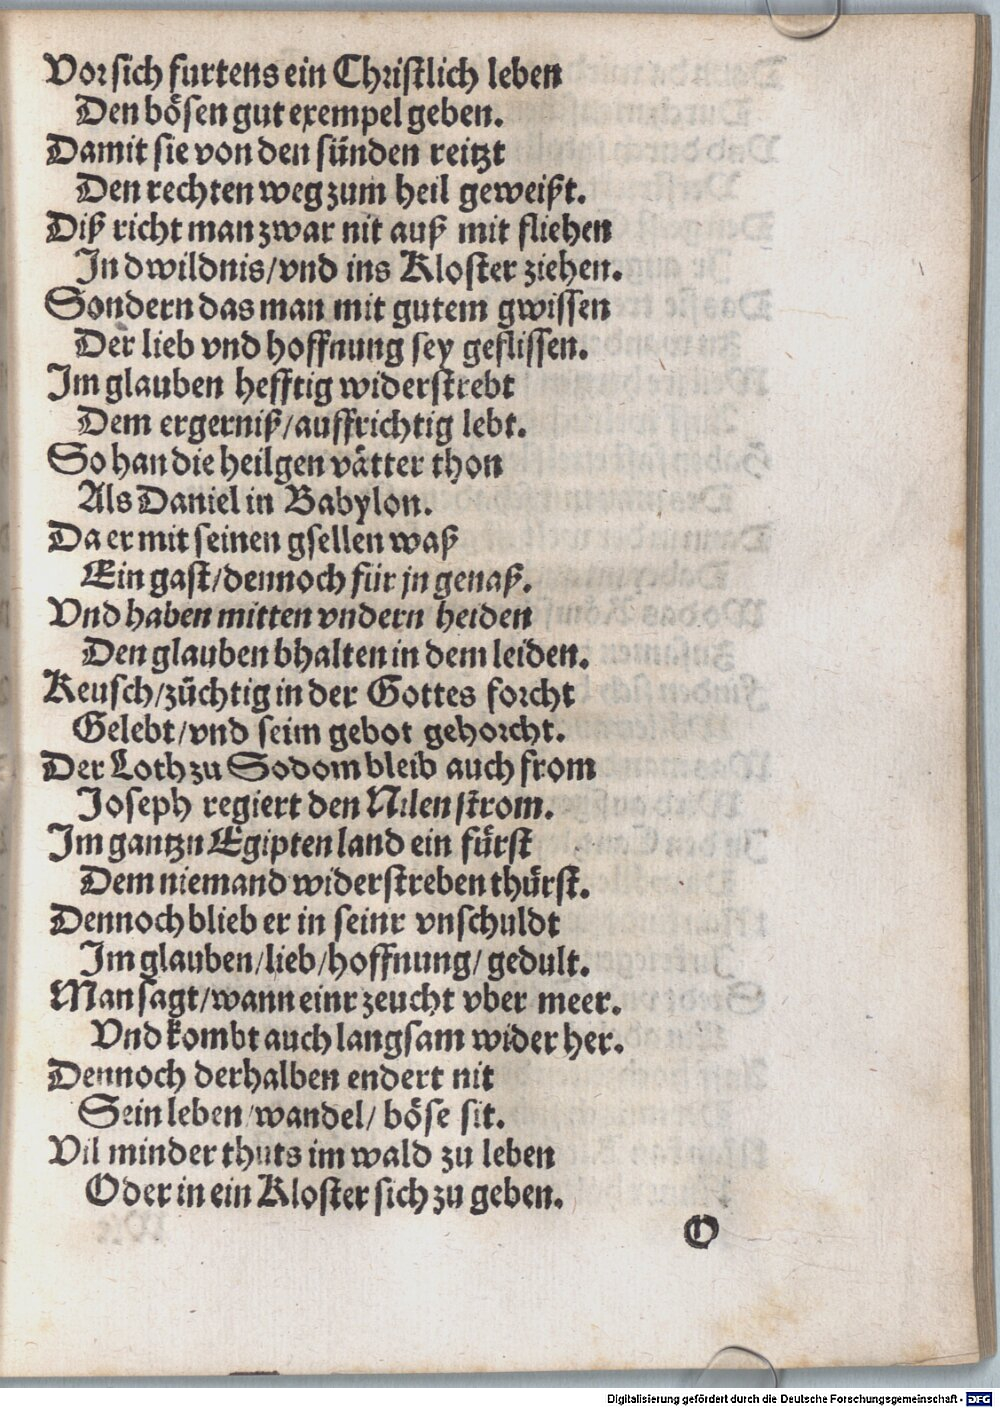 Vor sich furtens ein Christlich leben
Den bösen gut exempel geben.
Damit sie von den sünden reitzt
Den rechten weg zum heil geweißt.
Diß richt man zwar nit auß mit fliehen
In dwildnis/vnd ins Kloster ziehen.
Sondern das man mit gutem gwissen
Der lieb vnd hoffnung sey geflissen.
Im glauben hefftig widerstrebt
Dem ergerniß/auffrichtig lebt.
So han die heilgen vätter thon
Als Daniel in Babylon.
Da er mit seinen gsellen waß
Ein gast/dennoch für jn genaß.
Vnd haben mitten vndern heiden
Den glauben bhalten in dem leiden.
Keusch/züchtig in der Gottes forcht
Gelebt/vnd seim gebot gehorcht.
Der Loth zu Sodom bleib auch from
Joseph regiert den Nilen strom.
Im gantzn Egipten land ein fürst
Dem niemand widerstreben thürst.
Dennoch blieb er in seinr vnschuldt
Im glauben/lieb/hoffnung/gedult.
Man sagt/wann einr zeucht vber meer.
Vnd kombt auch langsam wider her.
Dennoch derhalben endert nit
Sein leben/wandel/böse sit.
Vil minder thuts im wald zu leben
Oder in ein Kloster sich zu geben.
O
Digitalisierung gefördert durch die Deutsche Forschungsgemeinschaft - DFG